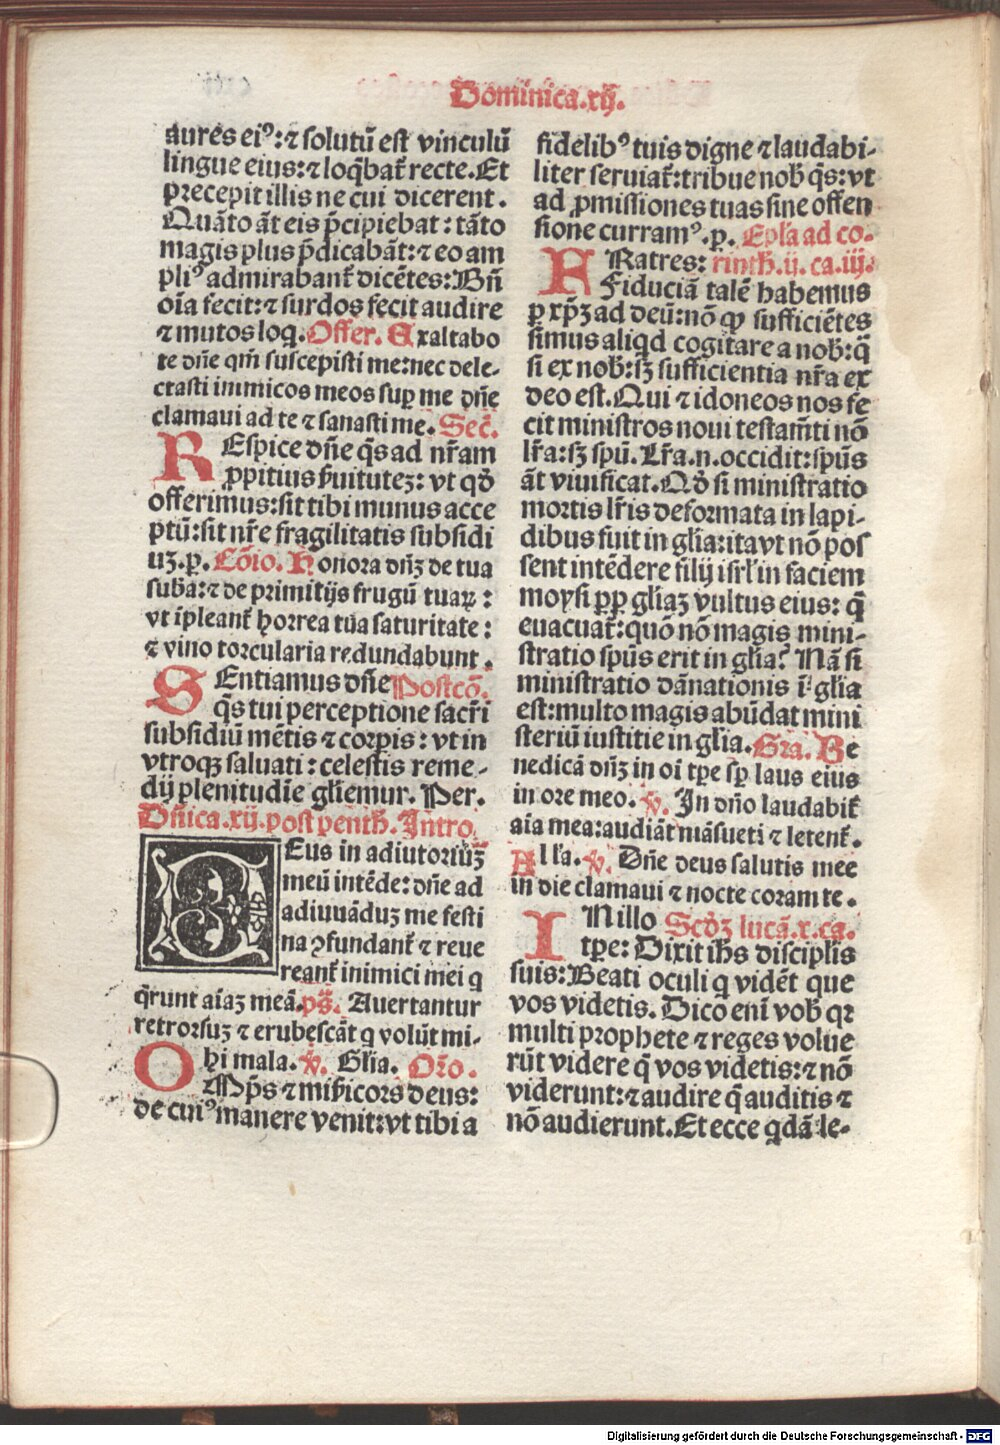 Dominica.xij.
aures eiꝰ:⁊ solutū est vinculū
lingue eius:⁊ loq̄bat̄ recte.Et
precepit illis ne cui dicerent.
Quāto āt eis p̄cipiebat: tāto
magis plus p̄dicabāt:⁊ eo am
pliꝰ admirabant̄ dicētes:Bn̄
oīa fecit:⁊ surdos fecit audire
⁊ mutos loq.Offer. Exaltabo
te dn̄e qm̄ suscepisti me:nec dele-
ctasti inimicos meos suꝑ me dn̄e
clamaui ad te ⁊ sanasti me. Sec̄.
REspice dn̄e q̄s ad nr̄am
ꝓpitius ẜuitutez: vt qd̄
offerimus:sit tibi munus acce
ptū:sit nr̄e fragilitatis subsidi
uꝫ.p. Cōio. Honora dn̄ꝫ de tua
suba:⁊ de primitijs frugū tuaꝝ:
vt īpleant̄ horrea tua saturitate:
⁊ vino torcularia redundabunt.
SEntiamus dn̄e Postcō.
q̄s tui perceptione sacr̄i
subsidiū mētis ⁊ corpis: vt in
vtroqꝫ saluati: celestis reme-
dij plenitudīe gl̄iemur. Per.
Dn̄ica.xij.post penth̄. Intro
DEus in adiutoriuꝫ
meū intēde: dn̄e ad
adiuuāduꝫ me festi
na ꝯfundant̄ ⁊ reue
reant̄ inimici mei q
q̄runt aīaꝫ meā.ps̄. Auertantur
retrorsuꝫ ⁊ erubescāt q volūt mi-
hi mala. ℣. Glīa. Or̄o.
OMp̄s ⁊ mis̄icors deus:
de cuiꝰ manere venit:vt tibi a
fidelibꝰ tuis digne ⁊ laudabi-
liter seruiat̄:tribue nob̄ q̄s:vt
ad ꝓmissiones tuas sine offen
sione curramꝰ.p. Epl̄a ad co-
FRatres: rinth̄.ij. ca.iij.
Fiduciā talē habemus
ꝑ xp̄ꝫ ad deū:nō ꝙ sufficiētes
simus aliqd cogitare a nob̄:q̄
si ex nob̄:sꝫ sufficientia nr̄a ex
deo est.Qui ⁊ idoneos nos fe
cit ministros noui testam̄ti nō
lr̄a:sꝫ spū. Lr̄a.n.occidit:spūs
āt viuificat.Qd̄ si ministratio
mortis lr̄is deformata in lapi-
dibus fuit in gl̄ia:ita vt nō pos
sent intēdere filij isrl̄ in faciem
moysi ꝓp gl̄iaꝫ vultus eius: q̄
euacuat̄:quō nō magis mini-
stratio spūs erit in gl̄ia? Nā si
ministratio dānationis ī gl̄ia
est:multo magis abūdat mini
steriū iustitie in gl̄ia. Gra. Be
nedicā dn̄ꝫ in oī tꝑe sꝑ laus eius
in ore meo. ℣. In dn̄o laudabit̄
aīa mea:audiāt māsueti ⁊ letent̄.
All̄a. ℣. Dn̄e deus salutis mee
in die clamaui ⁊ nocte coram te.
INillo Scd̄ꝫ lucā.x.ca.
tꝑe: Dixit ih̄s discipl̄is
suis:Beati oculi q vidēt que
vos videtis. Dico enī vob̄ qꝛ
multi prophete ⁊ reges volue
rūt videre q̄ vos videtis:⁊ nō
viderunt:⁊ audire q̄ auditis ⁊
nō audierunt.Et ecce qdā le-
Digitalisierung gefördert durch die Deutsche Forschungsgemeinschaft - DFG